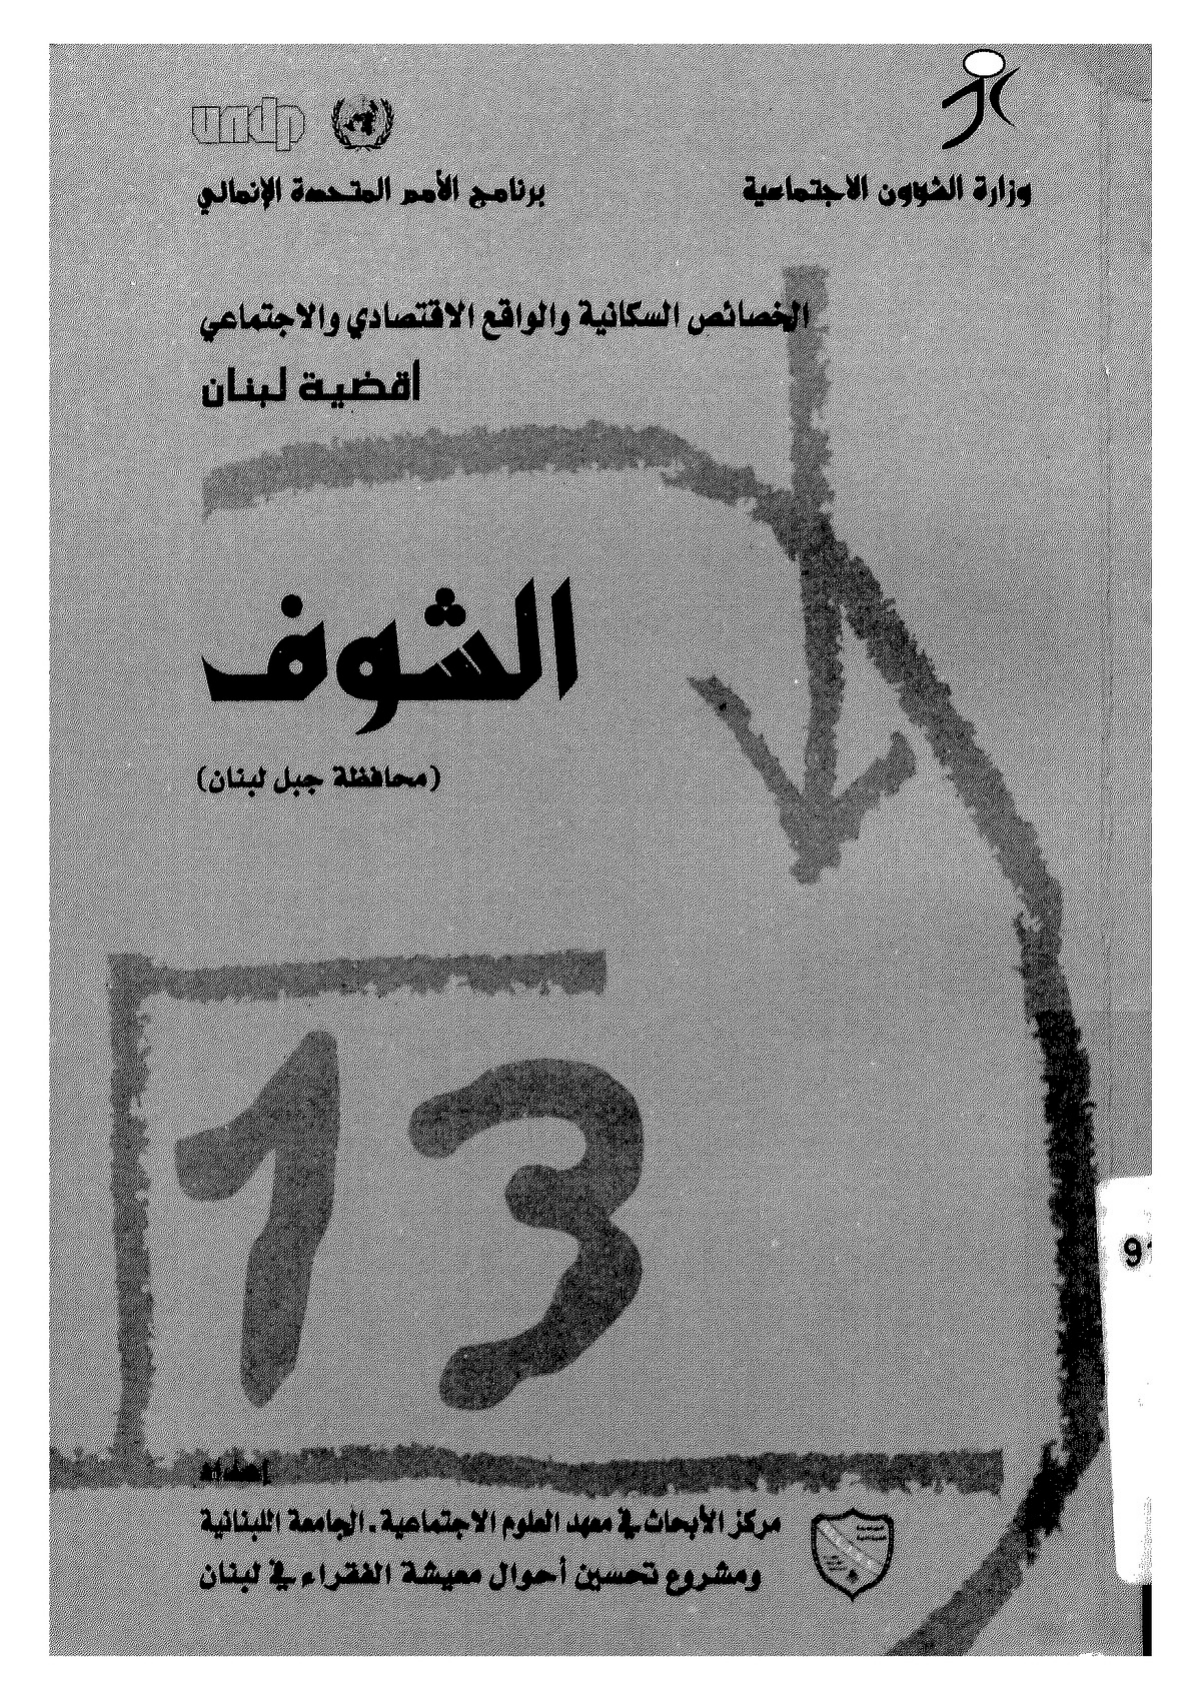 undp
وزارة الشؤون الاجتماعية
برنامج الأمم المتحدة الإنمائي
الخصائص السكانية والواقع الاقتصادي والاجتماعي
أقضية لبنان
الشوف
(محافظة جبل لبنان)
13
91
إعداد
مركز الأبحاث في معهد العلوم الاجتماعية . الجامعة اللبنانية
ومشروع تحسين أحوال معيشة الفقراء في لبنان